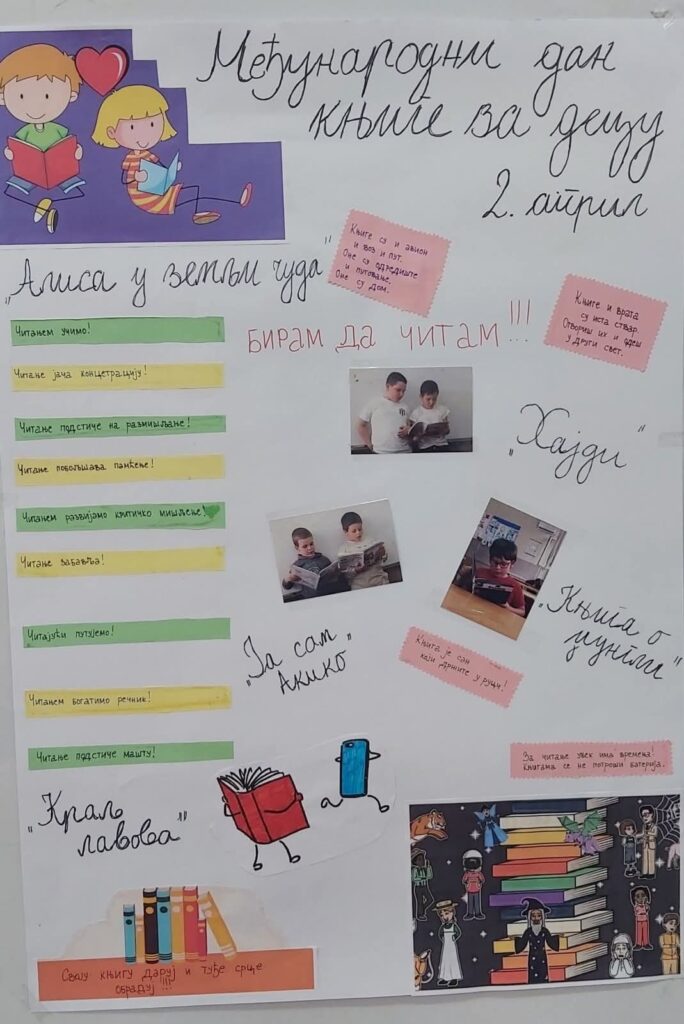 Међународни дан
књиге за децу
2. април
„Алиса у земљи чуда"
Књиге су и авион
и воз и пут.
Оне су одредиште
и путовање.
Оне су дом.
Књиге и врата
су иста ствар.
Отвориш их и одеш
у други свет.
БИРАМ ДА ЧИТАМ!!!
Читањем учимо!
Читање јача концетрацију!
Читање подстиче на размишљање!
Читање побољшава памћење!
Читањем развијамо критичко мишљење!
Читање забавља!
Читајући путујемо!
Читањем богатимо речник!
Читање подстиче машту!
„Хајди"
„Књига о
џунгли"
„Ја сам
Акико"
Књига је сан
који држите у руци!
За читање увек има времена!
Књигама се не потроши батерија.
„Краљ
лавова"
Своју књигу даруј и туђе срце
обрадуј!!!